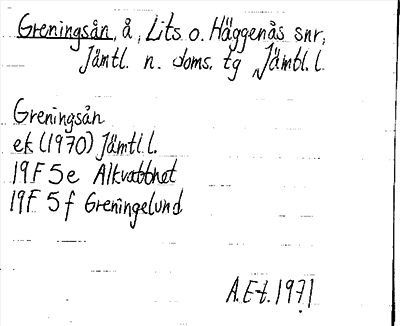 Greningsån, å, Lits o. Häggenås snr,
Jämtl. n. doms. tg, Jämtl. l.
Greningsån
ek (1970) Jämtl. l.
19F 5e Alkvattnet
19F 5f Greningelund
A. E-t. 1971